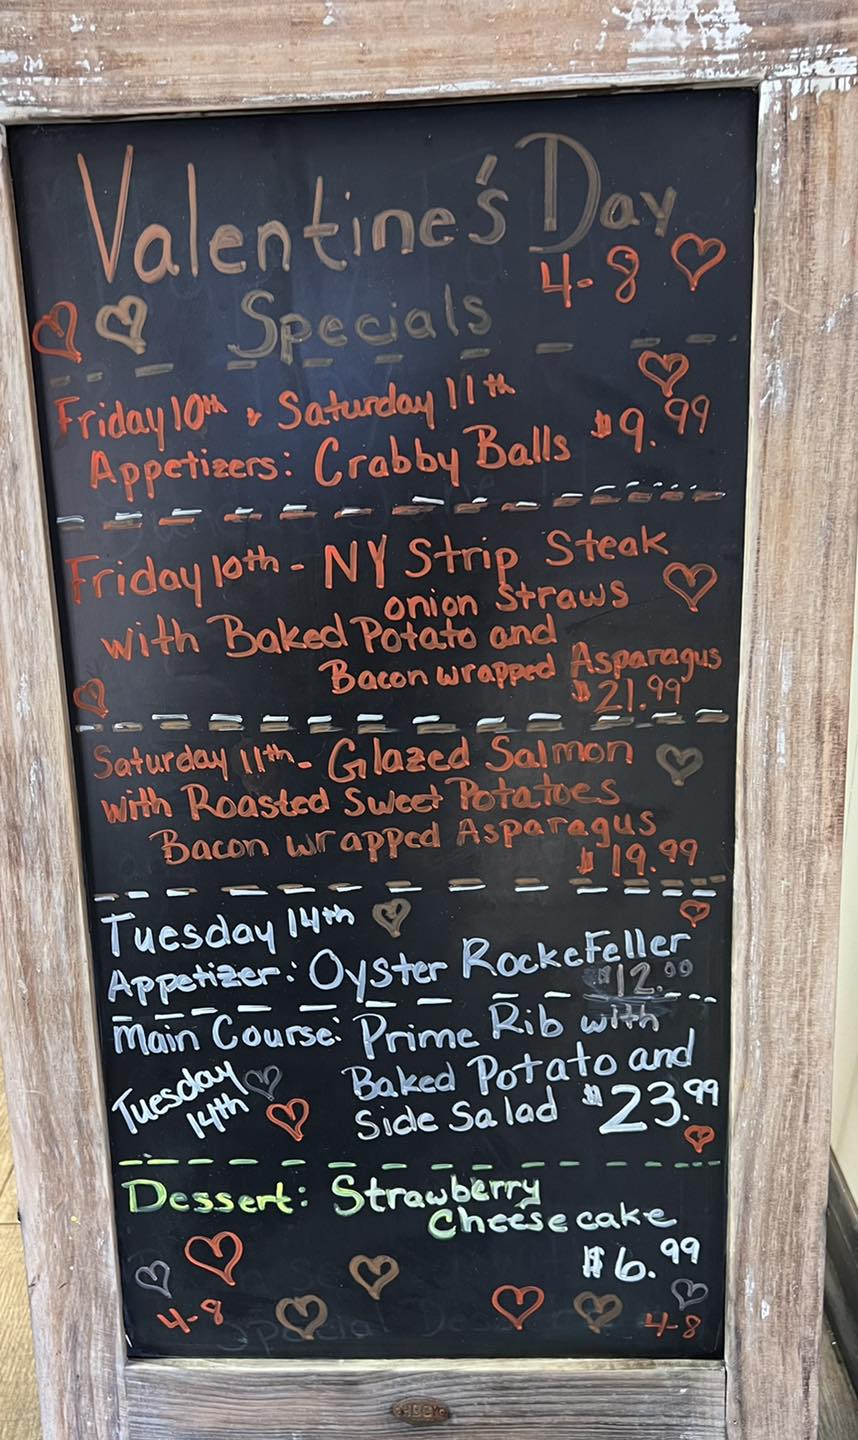 Valentine's Day
4-8
Specials
Friday 10th & Saturday 11th
Appetizers: Crabby Balls $9.99
Friday 10th - NY Strip Steak
onion straws
with Baked Potato and
Bacon wrapped Asparagus
$21.99
Saturday 11th - Glazed Salmon
with Roasted Sweet Potatoes
Bacon wrapped Asparagus
$19.99
Tuesday 14th
Appetizer: Oyster Rockefeller
$12.99
Main Course: Prime Rib with
Baked Potato and
Side Salad $23.99
Tuesday
14th
Dessert: Strawberry
Cheesecake
$6.99
4-8
4-8